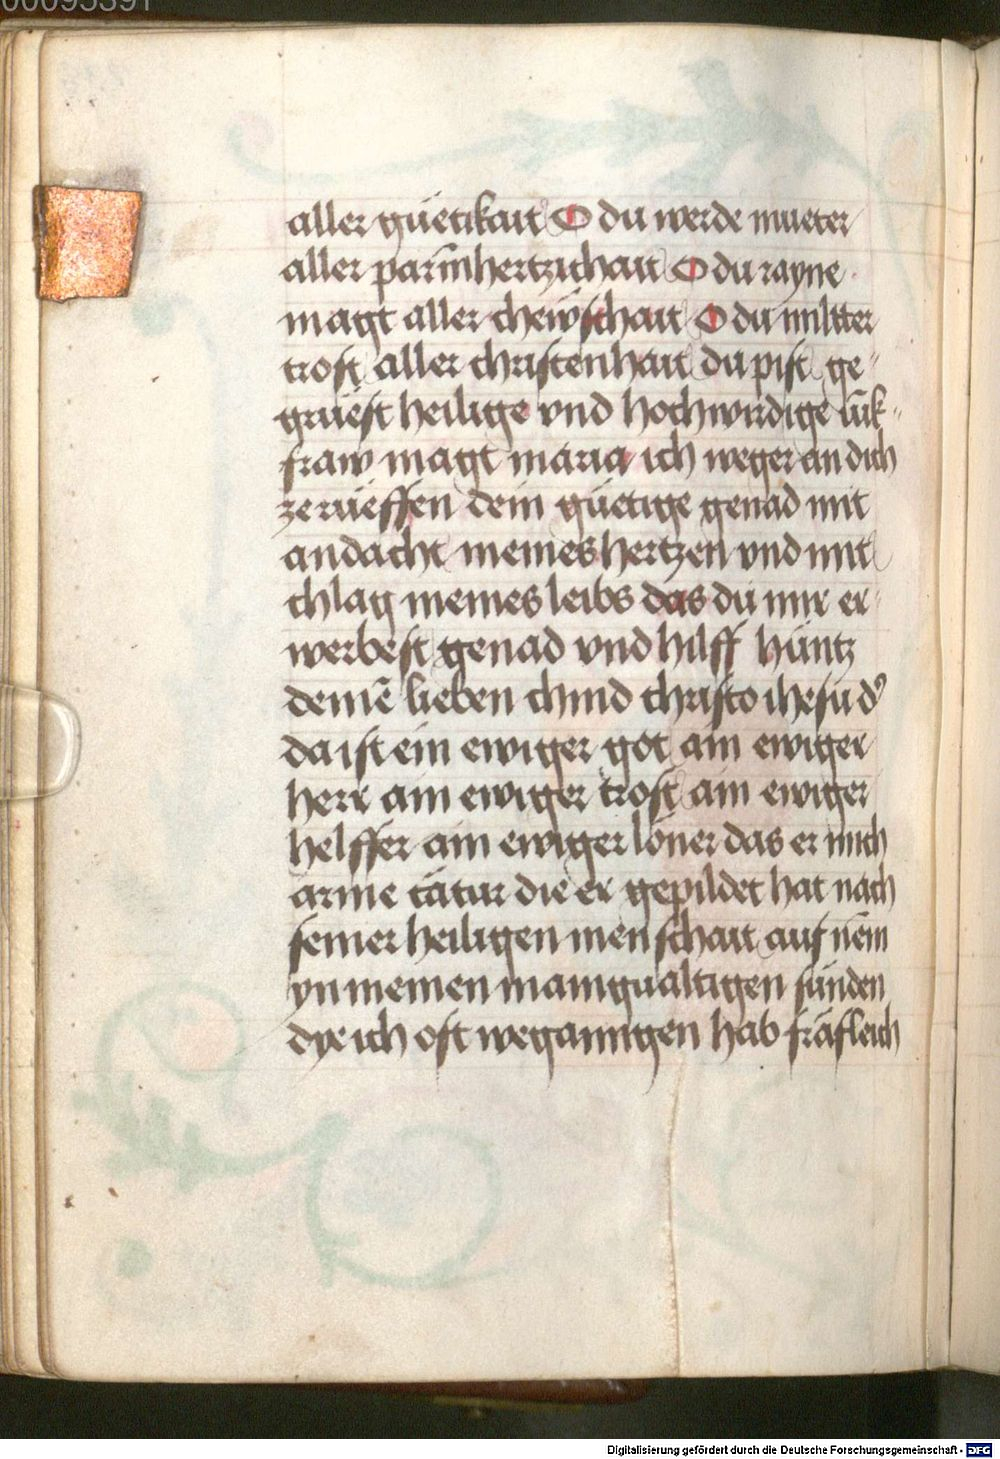 00095391
aller güetikait O du werde mueter
aller parm̄hertzichait O du rayne
magt aller chewschait O du miltter
trost aller christenhait du pist ge⸗
gruest heilige vnd hochwirdige iūk⸗
fraw magt maria ich weger an dich
ze rüeffen dein güetige genad mit
andacht meines hertzen vnd mit
chlag meines leibs das du mir er⸗
werbest genad vnd hilff hüntz
deinē lieben chind christo ihesu d᾽
da ist ein ewiger got ain ewiger
herr ain ewiger trost ain ewiger
helffer ain ewiger löner das er mich
arme tätur die er gepildet hat nach
seiner heiligen menschait auf nēm
yn meinen manigualtigen sünden
dye ich oft wegannigen hab fräfleich
Digitalisierung gefördert durch die Deutsche Forschungsgemeinschaft - DFG